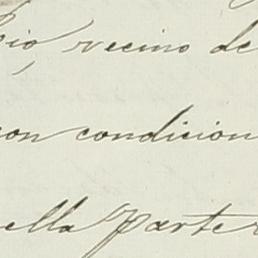 pio, vecino de
con condicion
ella parte